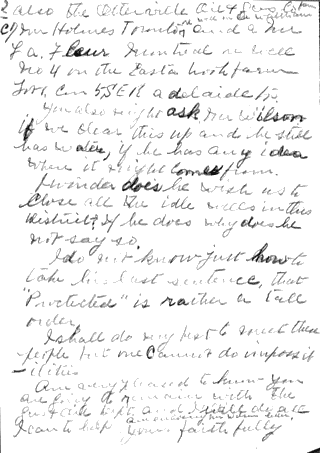 2 also the Otterville Oil & Gas
c/o Mr Holmes Toronto and a Mr
La Fleur Montreal re well
No 4 on the Easton Northfarm
Lot 1, Con 5, SER adelaide tp.
You also might ask Mr Wilson
if we clear this up and he still
has water, if he has any idea
where it might come from.
I wonder does he wish us to
close all the idle wells in this
district? If he does why does he
not say so.
I do not know just how to
take his last sentence, that
"Protected" is rather a tall
order
I shall do my best to meet these
people but one cannot do impossib
-ilities
Am very pleased to know you
are going to remain with the
and I will do all
I can to help
yours faithfully